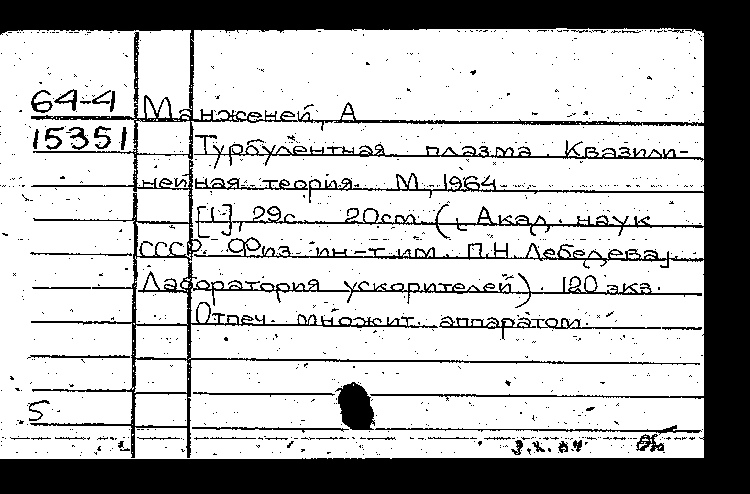 64-4 Манженей, А
15351 Турбулентная плазма. Квазили-
нейная теория. М, 1964
[1], 29с. 20см (, Акад. наук
СССР. Физ. ин-т им. П.Н. Лебедева,
Лаборатория ускорителей). 120 экз.
Отпеч. множит. аппаратом.
5